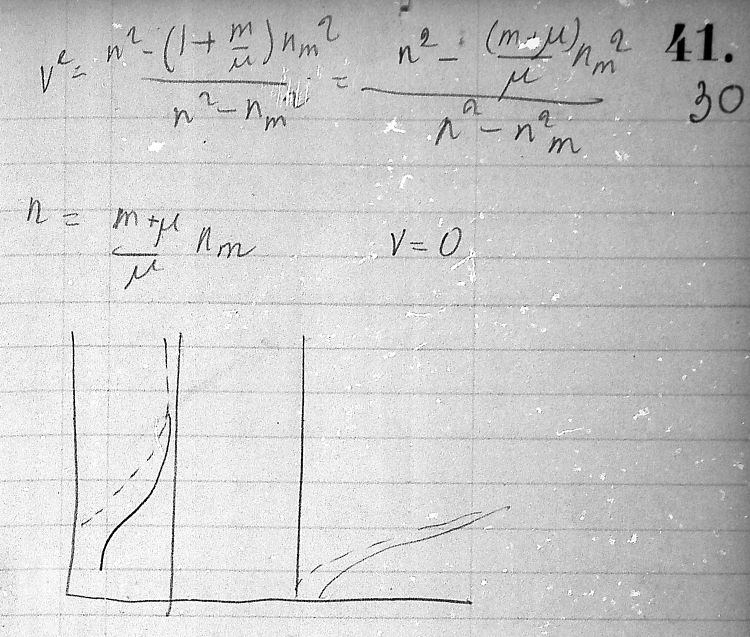 v² = n² - (1 + m/μ) n_m² / n² - n_m² = n² - (m+μ)/μ n_m² / n² - n²_m 41.
30
n = m+μ/μ n_m v = 0